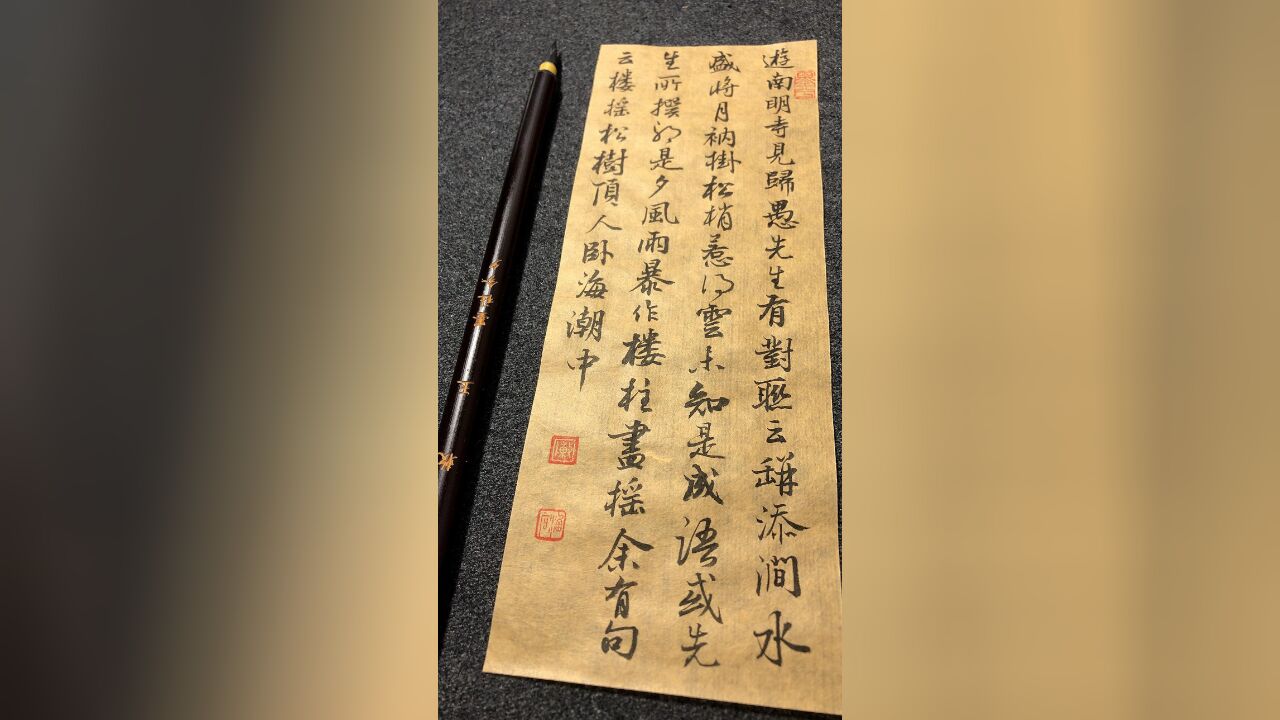 遊南明寺見歸愚先生有對聯云餅添澗水
盛将月衲掛松梢惹得雲未知是成语或先
生所撰那是夕風雨暴作楼柱盡摇余有句
云楼摇松樹頂人卧海潮中